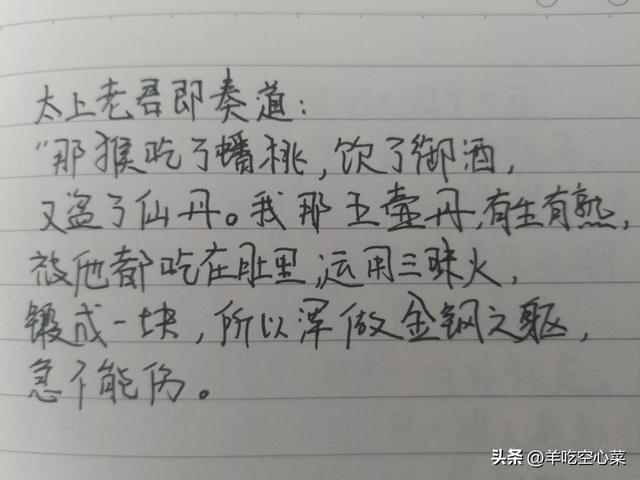 太上老君即奏道：
“那猴吃了蟠桃，饮了御酒，
又盗了仙丹。我那五壶丹，有生有熟，
被他都吃在肚里，运用三昧火，
锻成一块，所以浑做金钢之躯，
急不能伤。
头条 @羊吃空心菜